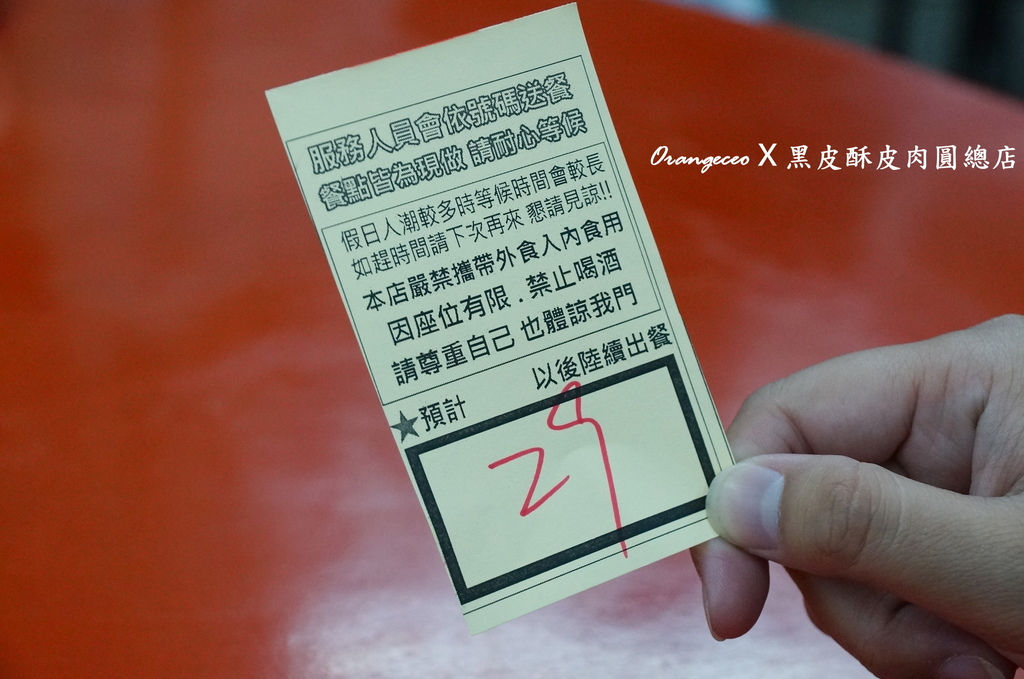 服務人員會依號碼送餐
餐點皆為現做 請耐心等候
假日人潮較多時等候時間會較長
如趕時間請下次再來 懇請見諒!!
本店嚴禁攜帶外食入內食用
因座位有限．禁止喝酒
請尊重自己 也體諒我們
★預計 以後陸續出餐
29
Orangeceo X 黑皮酥皮肉圓總店